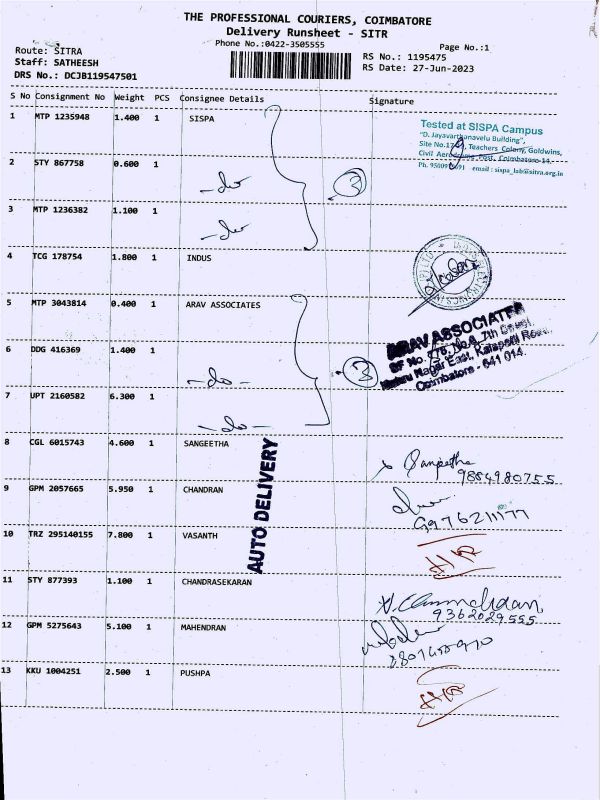 THE PROFESSIONAL COURIERS, COIMBATORE
Delivery Runsheet - SITR
Phone No.:0422-3505555
Page No.:1
Route: SITRA
Staff: SATHEESH
DRS No.: DCJB119547501
RS No.: 1195475
RS Date: 27-Jun-2023
S No Consignment No Weight PCS Consignee Details Signature
1 MTP 1235948 1.400 1 SISPA
Tested at SISPA Campus
"D. Jayavarthanavelu Building",
Teachers Colony, Goldwins,
Civil Aerodrome Post, Coimbatore-14.
email : sispa_lab@sitra.org.in
2 STY 867758 0.600 1 -do-
3
3 MTP 1236382 1.100 1 -do-
4 TCG 178754 1.800 1 INDUS
5 MTP 3043814 0.400 1 ARAV ASSOCIATES
ARAV ASSOCIATES
Nehru Nagar East, Kalapatti Road,
Coimbatore - 641 014.
6 DDG 416369 1.400 1 -do-
3
7 UPT 2160582 6.300 1 -do-
8 CGL 6015743 4.600 1 SANGEETHA
Sangeetha
9884980755
9 GPM 2057665 5.950 1 CHANDRAN
AUTO DELIVERY
10 TRZ 295140155 7.800 1 VASANTH
11 STY 877393 1.100 1 CHANDRASEKARAN
9362029555
12 GPM 5275643 5.100 1 MAHENDRAN
13 KKU 1004251 2.500 1 PUSHPA